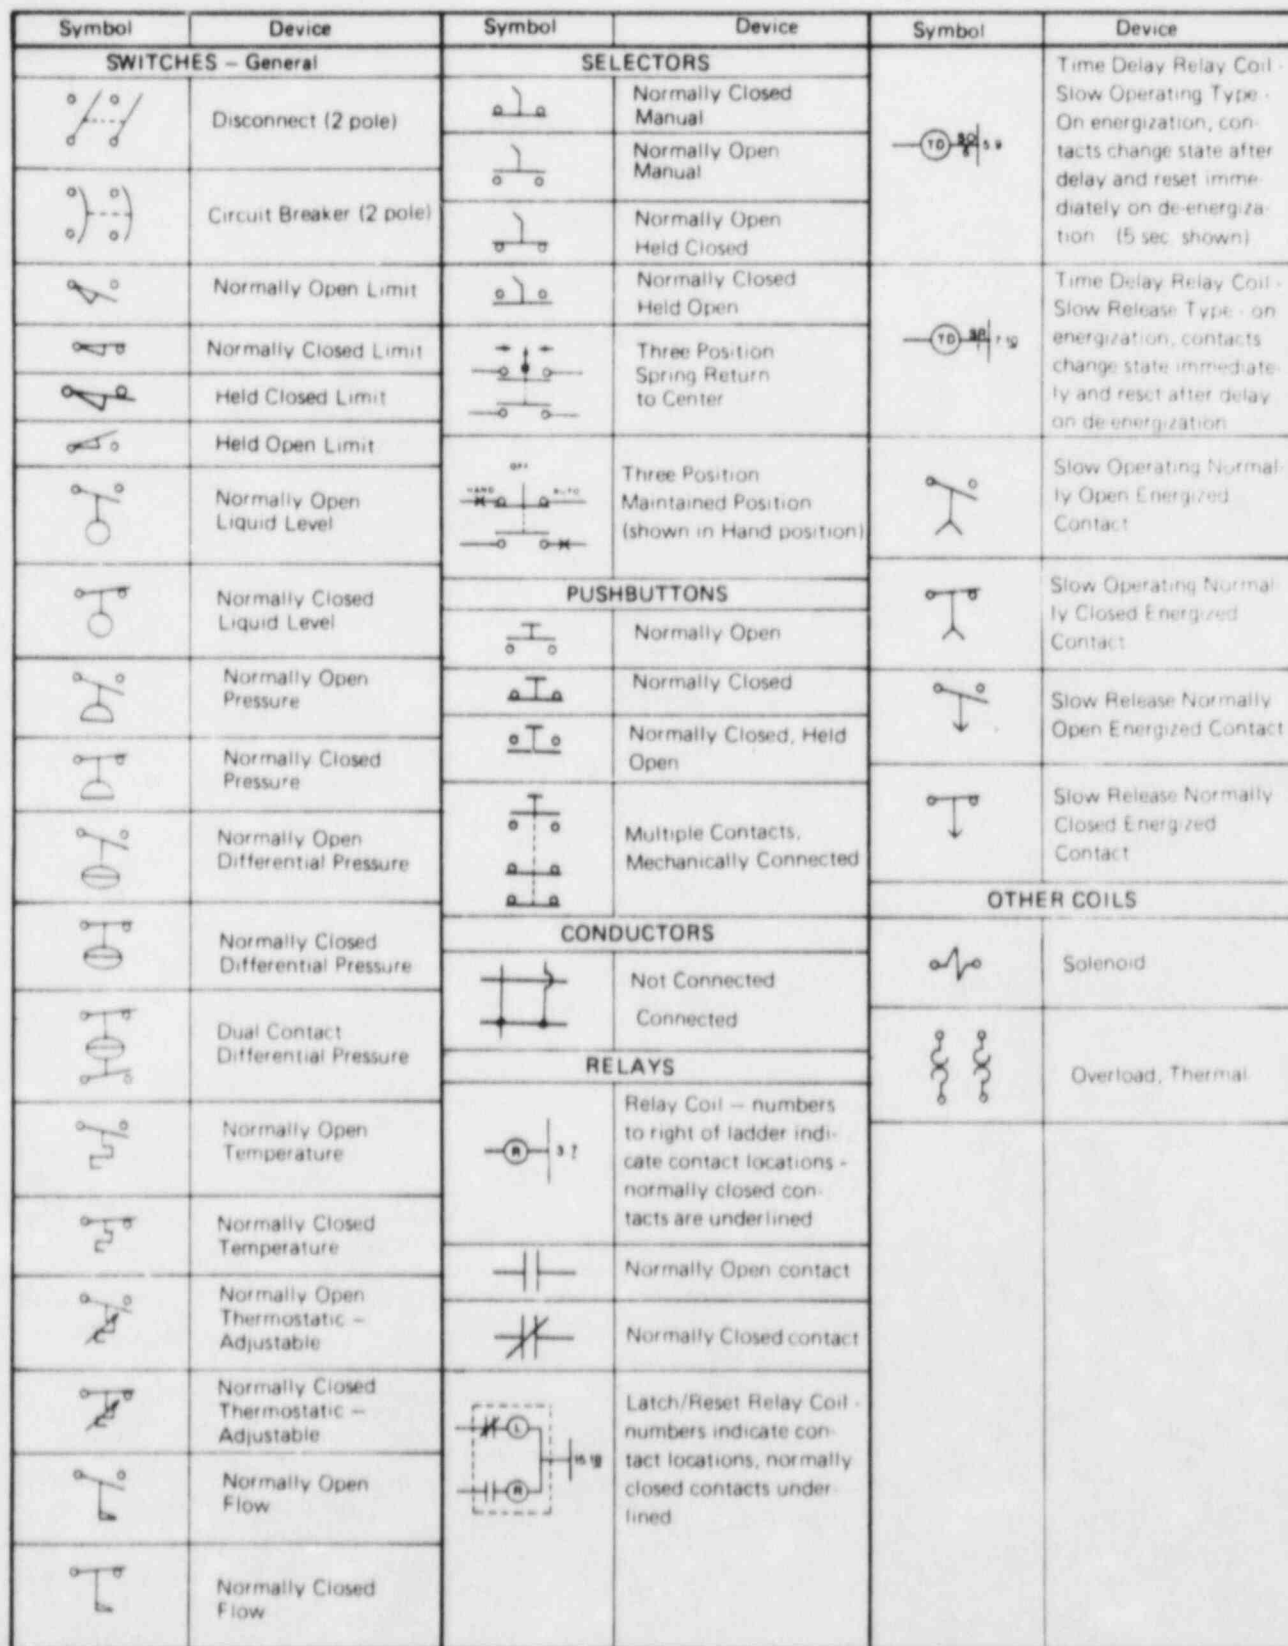 Symbol Device
SWITCHES – General
Disconnect (2 pole)
Circuit Breaker (2 pole)
Normally Open Limit
Normally Closed Limit
Held Closed Limit
Held Open Limit
Normally Open
Liquid Level
Normally Closed
Liquid Level
Normally Open
Pressure
Normally Closed
Pressure
Normally Open
Differential Pressure
Normally Closed
Differential Pressure
Dual Contact
Differential Pressure
Normally Open
Temperature
Normally Closed
Temperature
Normally Open
Thermostatic –
Adjustable
Normally Closed
Thermostatic –
Adjustable
Normally Open
Flow
Normally Closed
Flow
Symbol Device
SELECTORS
Normally Closed
Manual
Normally Open
Manual
Normally Open
Held Closed
Normally Closed
Held Open
Three Position
Spring Return
to Center
OFF
HAND AUTO
Three Position
Maintained Position
(shown in Hand position)
PUSHBUTTONS
Normally Open
Normally Closed
Normally Closed, Held
Open
Multiple Contacts,
Mechanically Connected
CONDUCTORS
Not Connected
Connected
RELAYS
R 3 7
Relay Coil – numbers
to right of ladder indi-
cate contact locations -
normally closed con-
tacts are underlined
Normally Open contact
Normally Closed contact
L
R
Latch/Reset Relay Coil -
numbers indicate con-
tact locations, normally
closed contacts under-
lined
Symbol Device
TD SO 5 5 9
Time Delay Relay Coil -
Slow Operating Type -
On energization, con-
tacts change state after
delay and reset imme-
diately on de-energiza-
tion (5 sec. shown)
TD SR 7 10
Time Delay Relay Coil -
Slow Release Type - on
energization, contacts
change state immediate-
ly and reset after delay
on de-energization
Slow Operating Normal-
ly Open Energized
Contact
Slow Operating Normal-
ly Closed Energized
Contact
Slow Release Normally
Open Energized Contact
Slow Release Normally
Closed Energized
Contact
OTHER COILS
Solenoid
Overload, Thermal